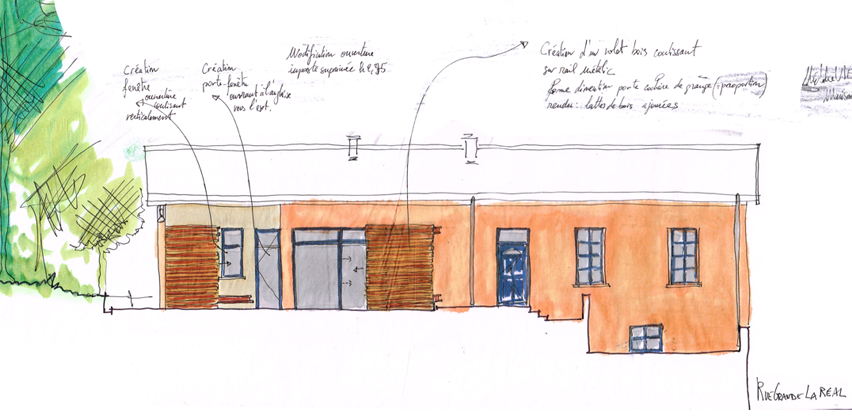 Création
fenêtre
ouverture
coulissant
verticalement
Création
porte-fenêtre
ouvrant à l'anglaise
vers l'ext.
Modification ouverture
imposte supprimée
Création d'un volet bois coulissant
sur rail métallic
forme dimention porte cochère de grange (proportion)
rendu : lattes de bois ajourées
RUE GRANDE LA RÉAL